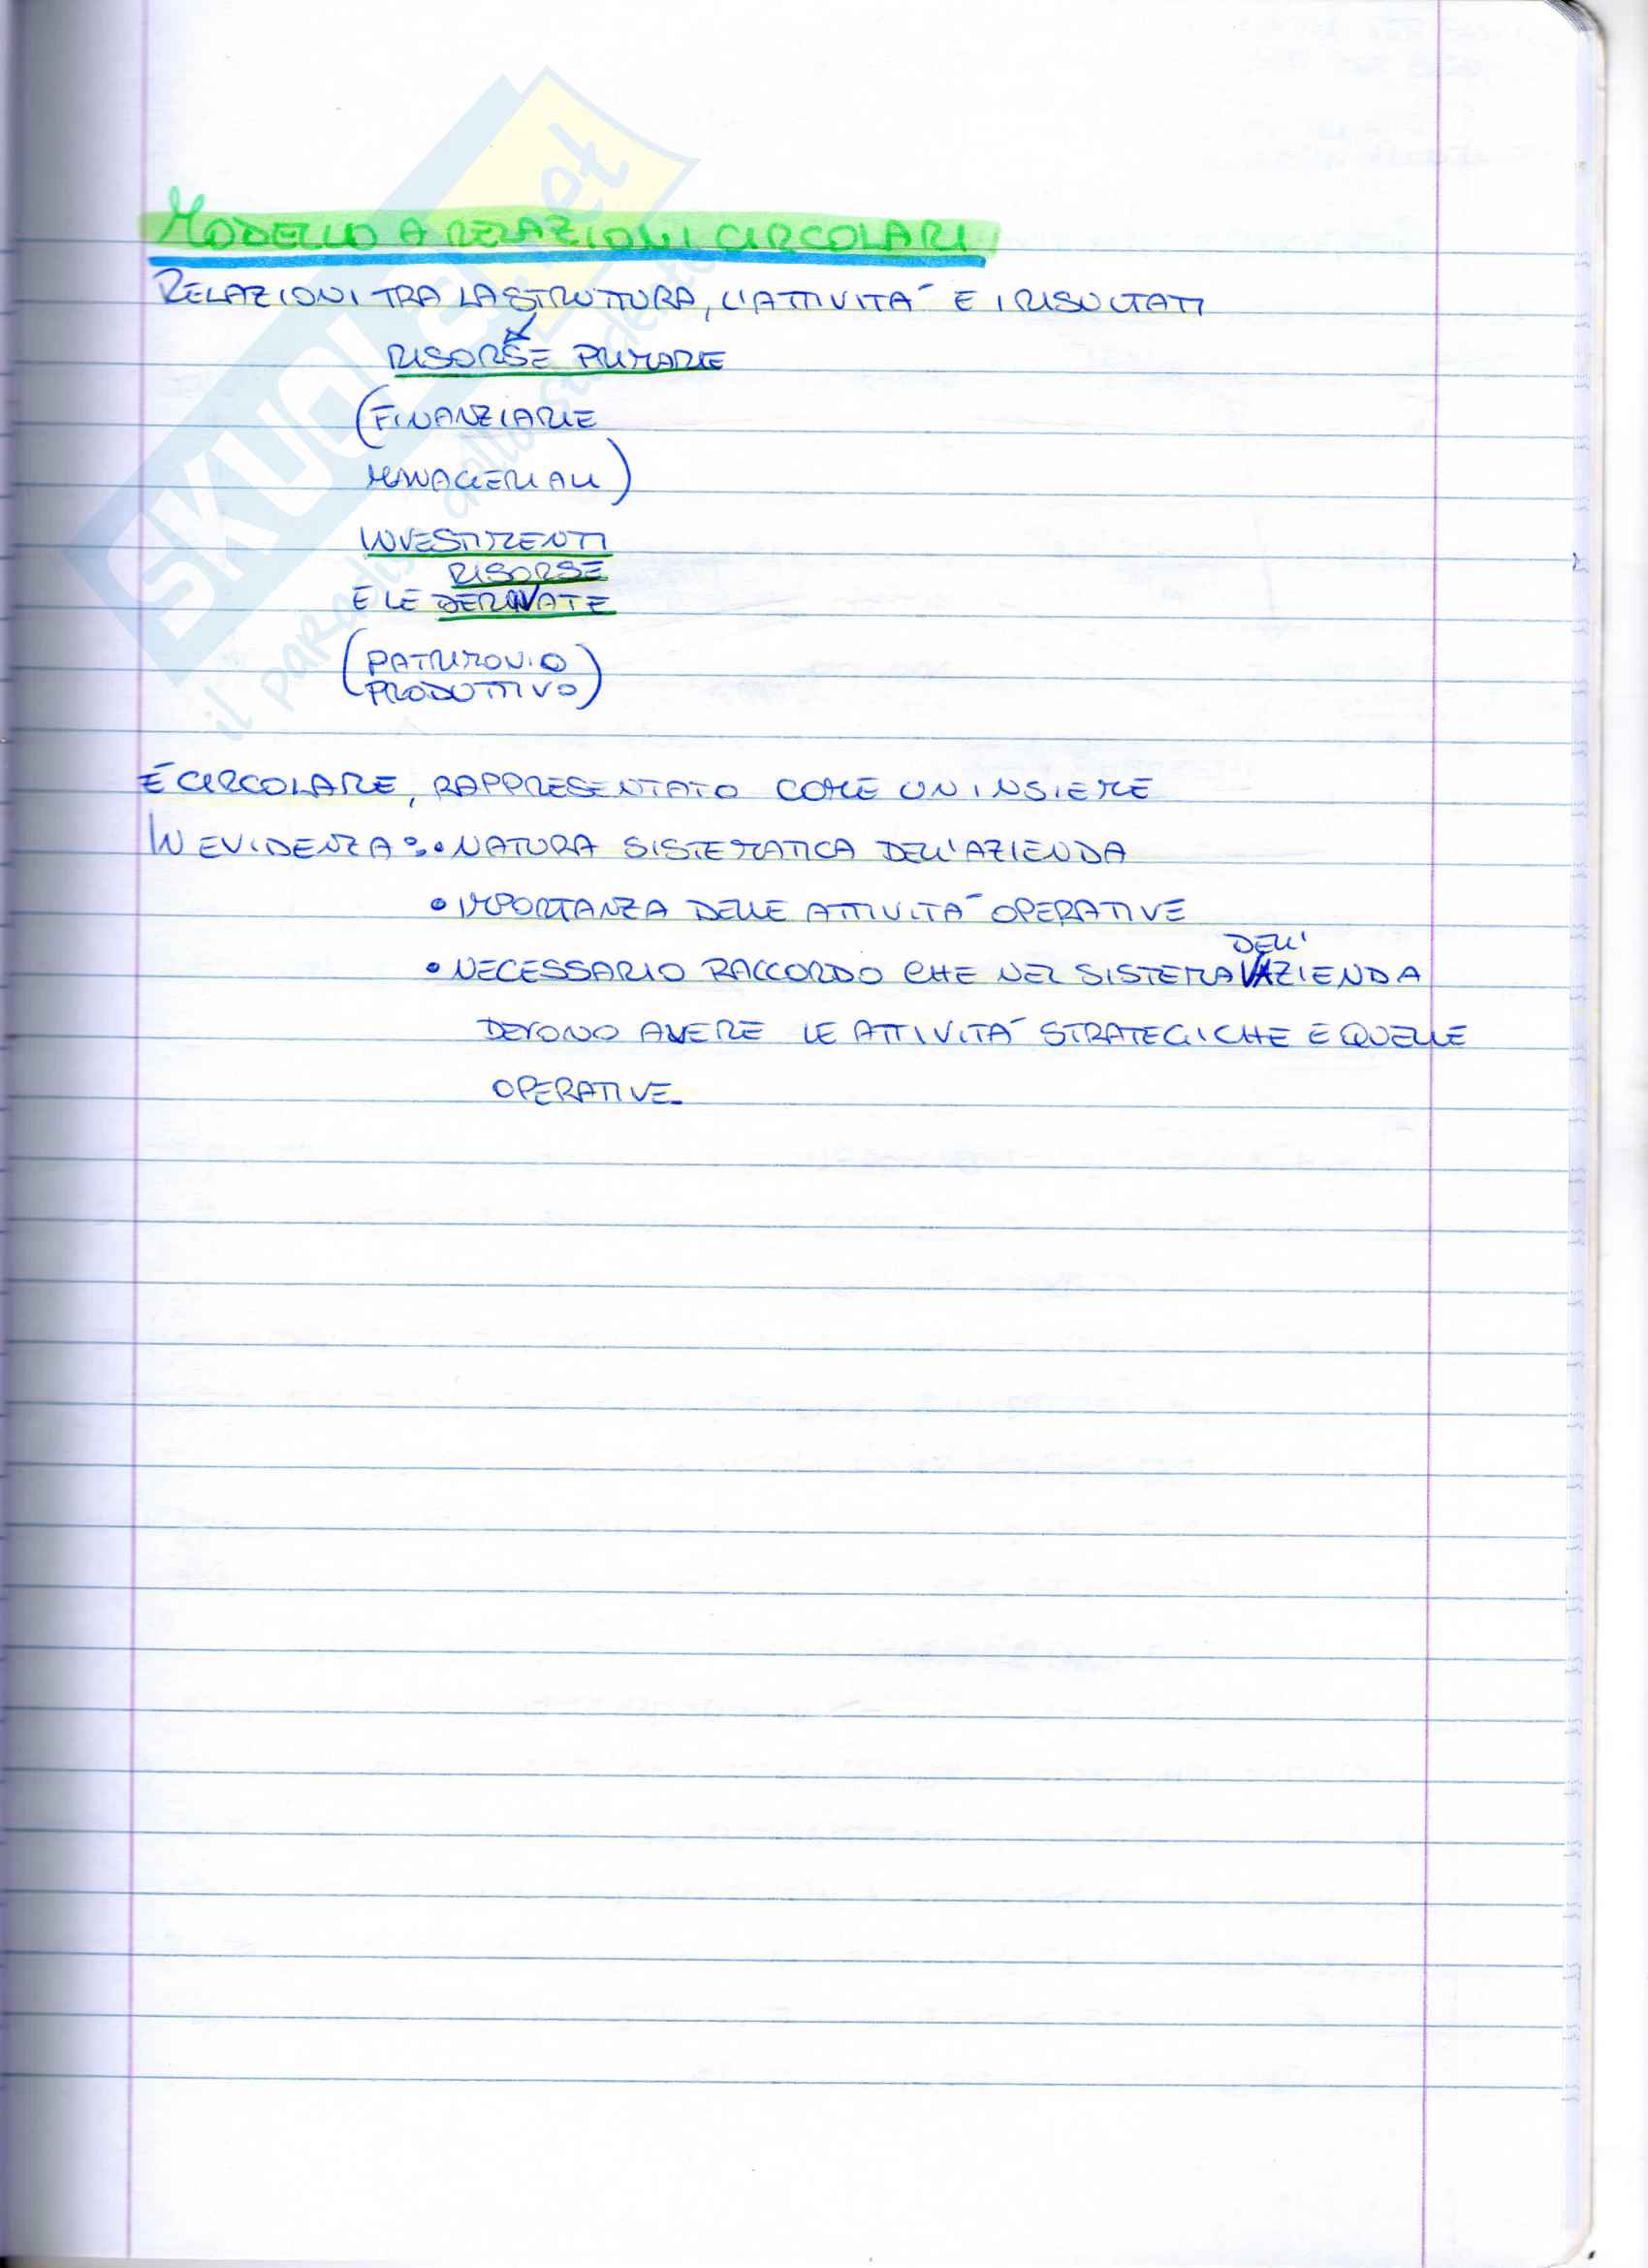 MODELLO A RELAZIONI CIRCOLARI
RELAZIONI TRA LA STRUTTURA, L'ATTIVITÀ E I RISULTATI
RISORSE PRIMARIE
(FINANZIARIE
MANAGERIALI)
INVESTIMENTI
RISORSE
E LE DERIVATE
(PATRIMONIO
PRODUTTIVO)
È CIRCOLARE, RAPPRESENTATO COME UN INSIEME
IN EVIDENZA: • NATURA SISTEMATICA DELL'AZIENDA
• IMPORTANZA DELLE ATTIVITÀ OPERATIVE
DELL'
• NECESSARIO RACCORDO CHE NEL SISTEMA AZIENDA
DEVONO AVERE LE ATTIVITÀ STRATEGICHE E QUELLE
OPERATIVE.
SKUOLA.net
il paradiso dello studente